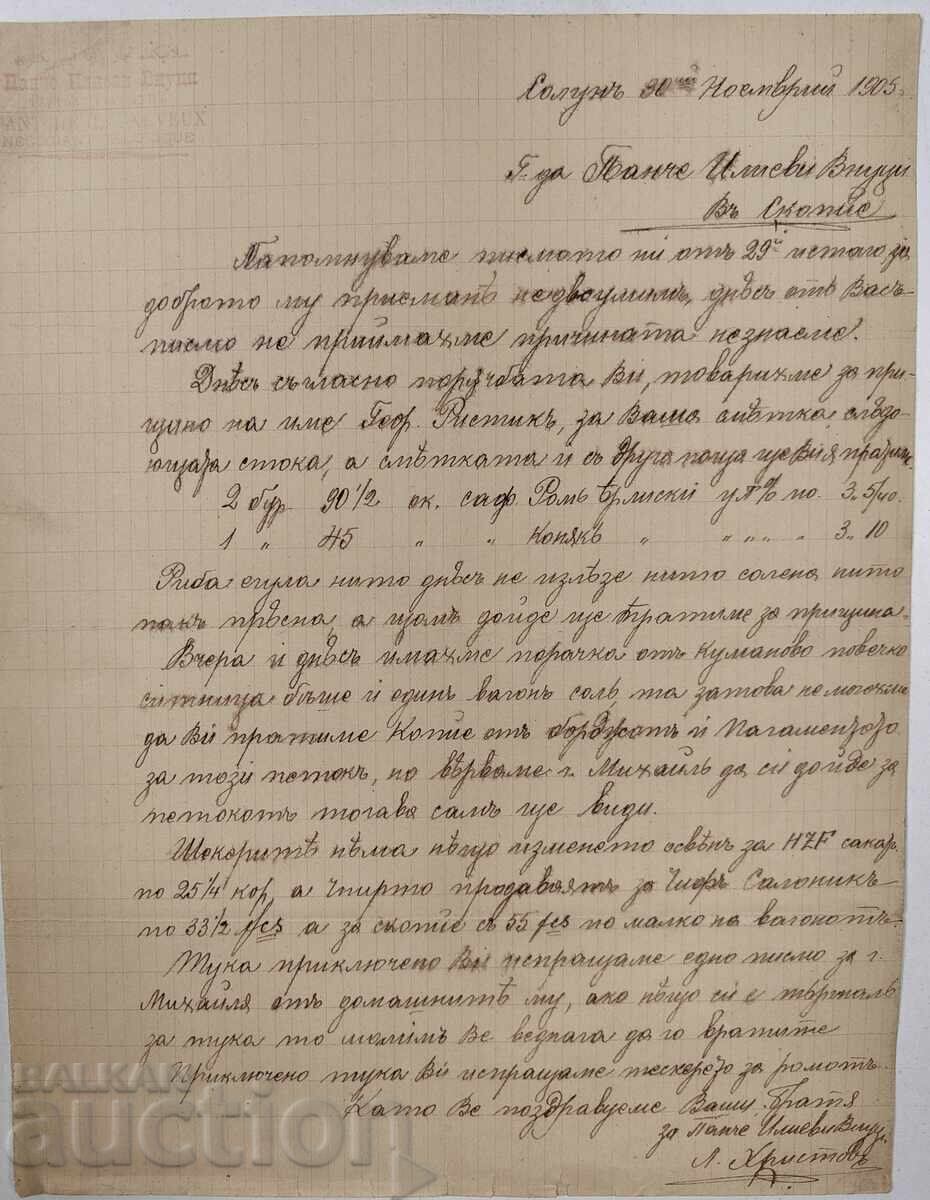 Солунъ 30ий Ноемврий 1905
Г-да Панче Илиеви Внуци
Въ Скопие
Напомнуваме писмото ни отъ 29й истаго, за
доброто му приемане недвоумимъ, днѣсъ отъ Васъ
писмо не приймахме причината незнаеме.
Днѣсъ съгласно порѫчбата Ви, товарихме за При-
щино на име Геор. Ристикъ, за Ваша смѣтка слѣдо-
ющата стока, а смѣтката и съ друга поща ще Ви я пратиме
2 бур. 90 1/2 ок. саф. Ромъ у п% по. 3.. 5/40.
1 " 45 " " Конякъ " " " " " 3.. 10
Риба сула нито днѣсъ не излѣзе нито солена нито
пакъ прѣсна, а щомъ дойде ще пратиме за Прищина.
Вчера и днѣсъ имахме порачка отъ Куманово повечко
ситница бѣше и единъ вагонъ соль та затова неможехме
да Ви пратиме Копие отъ и
за този петокъ, но вѣрваме г. Михаилъ да си дойде за
петокотъ тогава самъ ще види.
Шекеритѣ нѣма нѣщо изменето освѣнъ за HZF сакар.
по 25 1/4 кор, а спирто продаватъ за Чифъ Салоникъ
по 33 1/2 fcs а за скопие съ 55 fcs по малко на вагонотъ.
Тука приключено Ви испращаме едно писмо за г.
Михаиля отъ домашнитѣ му, ако нѣщо си е тѫрналъ
за тука то молимъ Ве веднага да го вратите
Приключено тука Ви испращаме тескерето за ромотъ.
Като Ве поздравуеме Ваши Братя
за Панче Илиеви Внуци
Л. Христовъ
BALKAN
auction